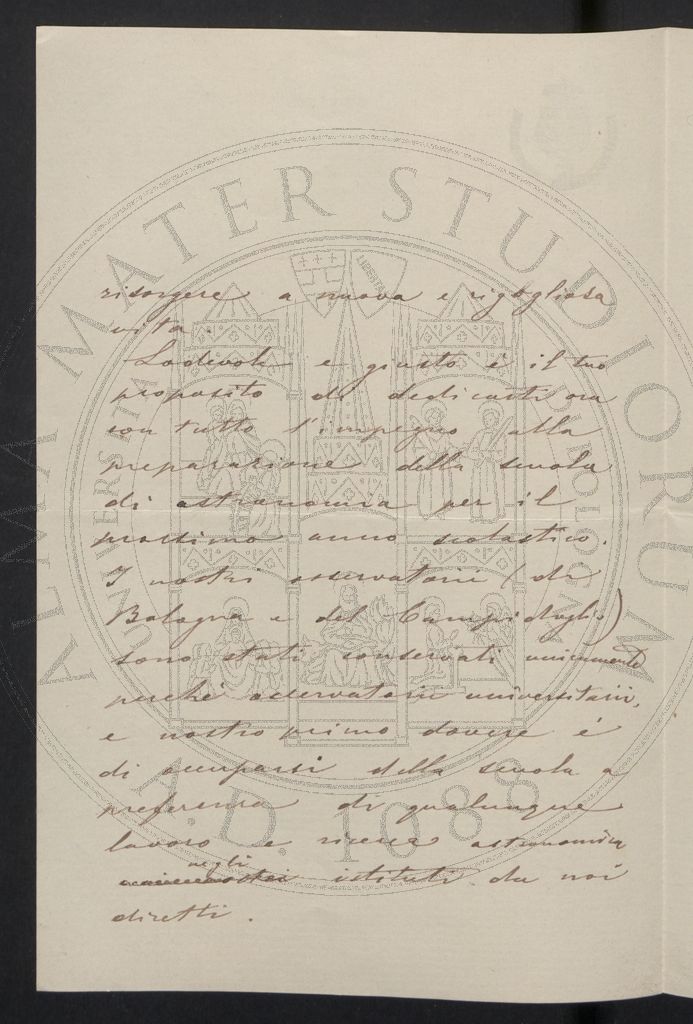 risorgere a nuova e rigogliosa
vita.
Lodevole e giusto è il tuo
proposito di dedicarti ora
con tutto l'impegno alla
preparazione della scuola
di astronomia per il
prossimo anno scolastico.
I nostri osservatorii (di
Bologna e del Campidoglio)
sono stati conservati unicamente
perchè osservatorii universitarii,
e nostro primo dovere è
di occuparsi della scuola a
preferenza di qualunque
lavoro e ricerca astronomica
negli
istituti da noi
diretti.
ALMA MATER STUDIORUM
A.D. 1088
LIBERTAS